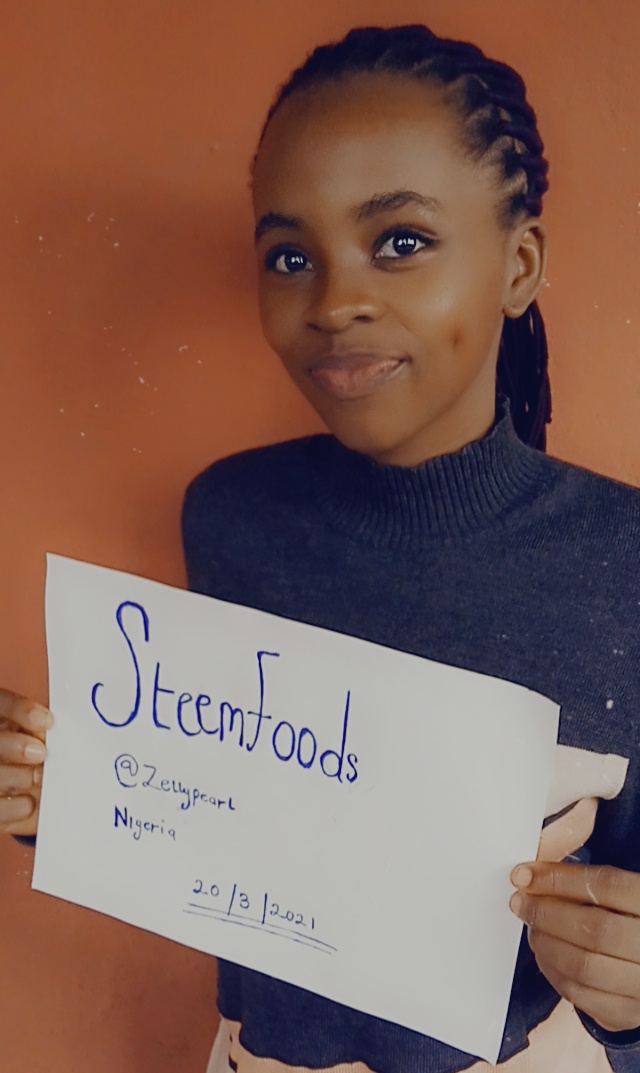 Steemfoods
@Zellypearl
Nigeria
20/3/2021